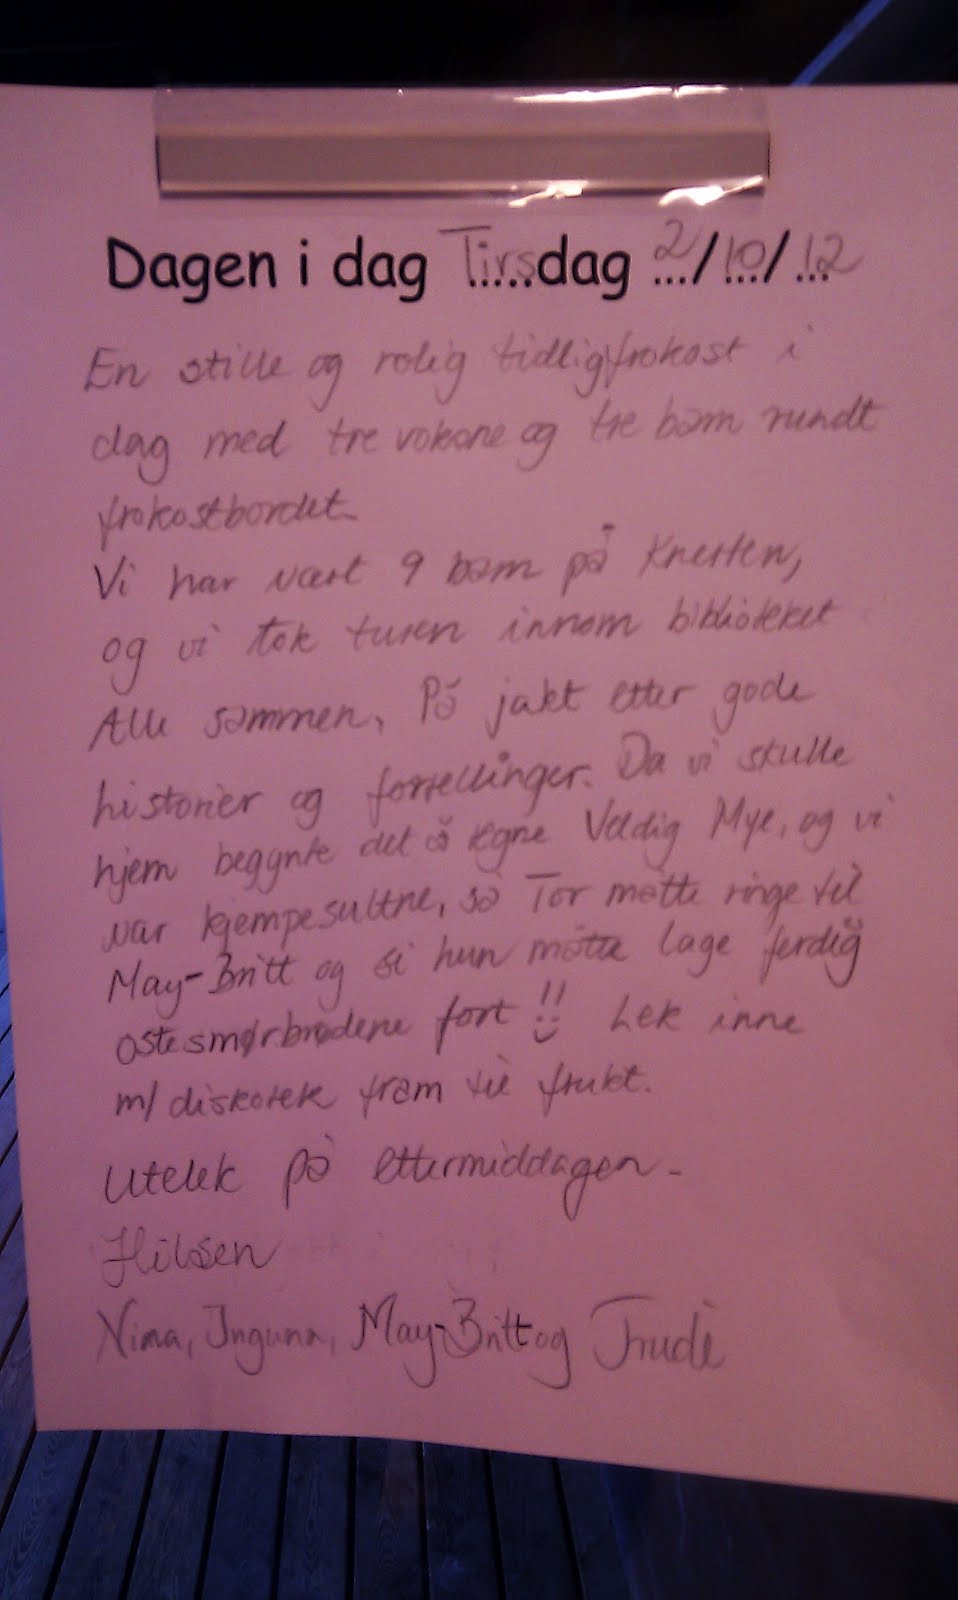 Dagen i dag Tirsdag 2/10/12
En stille og rolig tidligfrokost i
dag med tre voksne og tre barn rundt
frokostbordet.
Vi har vært 9 barn på Knerten,
og vi tok turen innom biblioteket
Alle sammen, På jakt etter gode
historier og fortellinger. Da vi skulle
hjem begynte det å regne Veldig Mye, og vi
var kjempesultne, så Tor måtte ringe til
May-Britt og si hun måtte lage ferdig
ostesmørbrødene fort!! Lek inne
m/ diskotek fram til frukt.
Utelek på ettermiddagen-
Hilsen
Nina, Ingunn, May-Britt og Trude